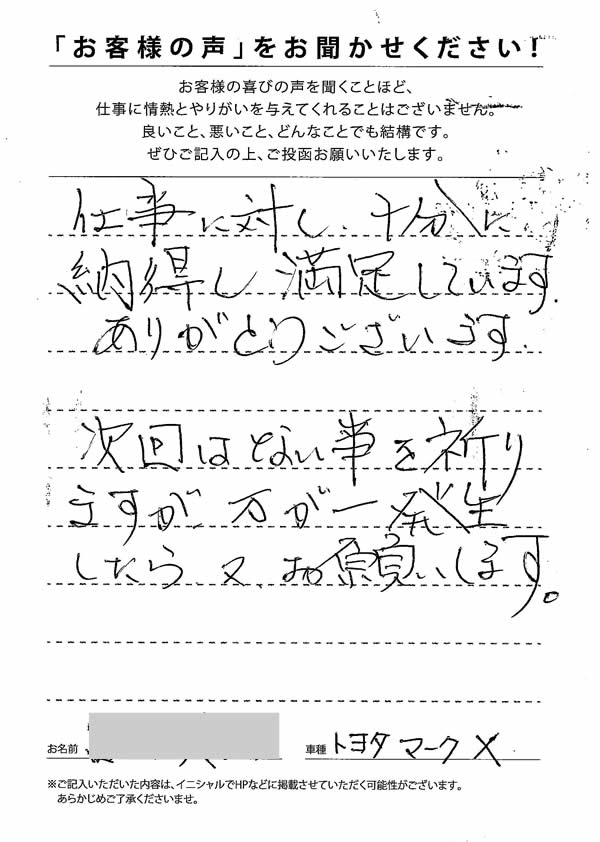 「お客様の声」をお聞かせください！
お客様の喜びの声を聞くことほど、
仕事に情熱とやりがいを与えてくれることはございません。
良いこと、悪いこと、どんなことでも結構です。
ぜひご記入の上、ご投函お願いいたします。
仕事に対し、十分に
納得し満足しています.
ありがとうございます.
次回はない事を祈り
ますが、万が一発生
したら又、お願いします。
お名前
車種 トヨタ マークX
※ご記入いただいた内容は、イニシャルでHPなどに掲載させていただく可能性がございます。
あらかじめご了承くださいませ。